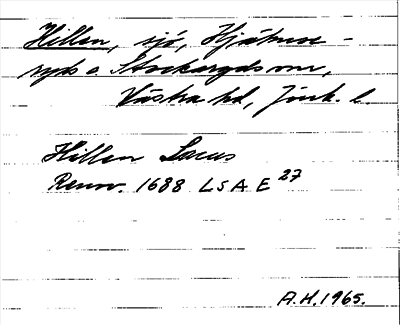 Hillen, sjö, Hjälmse-
ryds o. Stockaryds snr,
Västra hd, Jönk. l.
Hillen Lacus
Renv. 1688 LSA E 27
A.H. 1965.